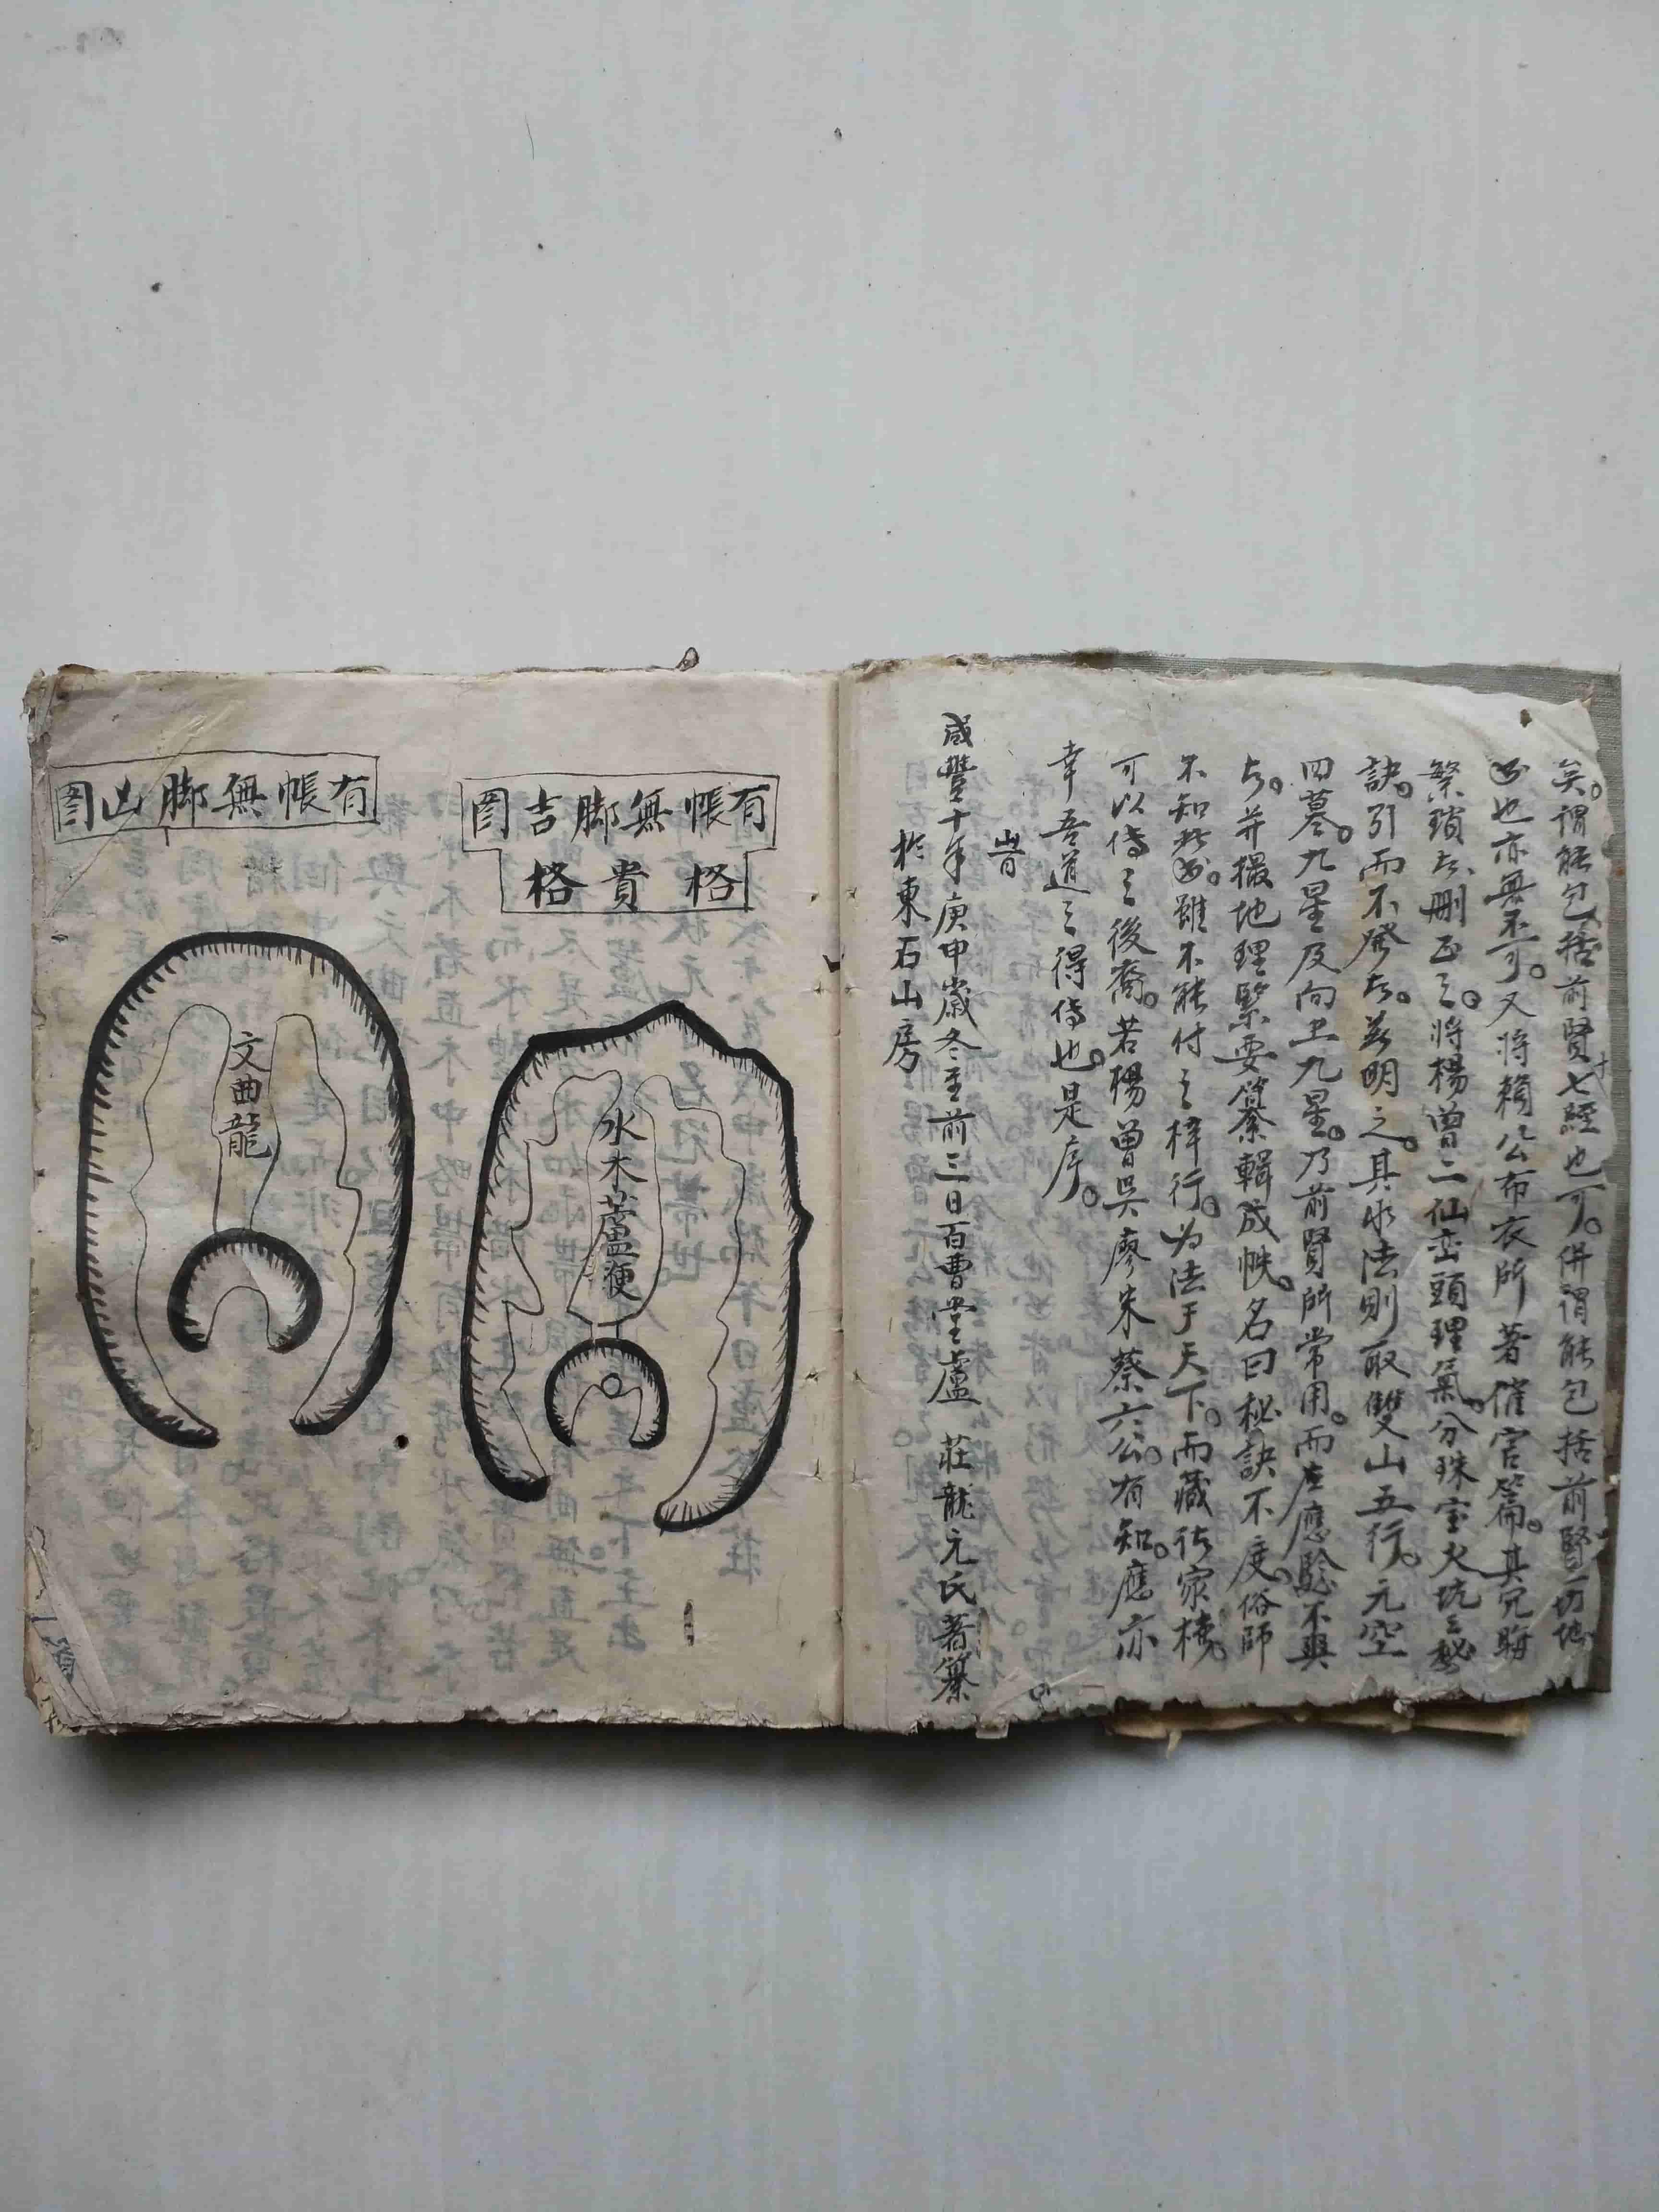 矣。謂能包括前賢七經也可。併謂能包括前賢一切地
也亦無不可。又將賴公布衣所著催官篇。其冗
繁瑣者刪正之。將楊曽二仙巒頭理氣。分珠宝火坑之秘
訣。引而不發者。兹明之。其水法則取雙山五行。元空
四墓。九星及向上九星。乃前賢所常用。而座應驗不與
者。并撮地理緊要纂輯成帙。名曰秘訣不度。俗師
不知於。雖不能付之梓行。为法于天下。而藏於家
可以傳之後裔。若楊曽吳廖朱蔡六公。有知。應亦
幸吾道之得傳也。是序。
旹
咸豐十年庚申歲冬至前三日百曹堂盧 莊龍元氏著纂
於東石山房
有帳無脚吉图
格貴格
水木蘆鞭
有帳無脚凶图
文曲龍